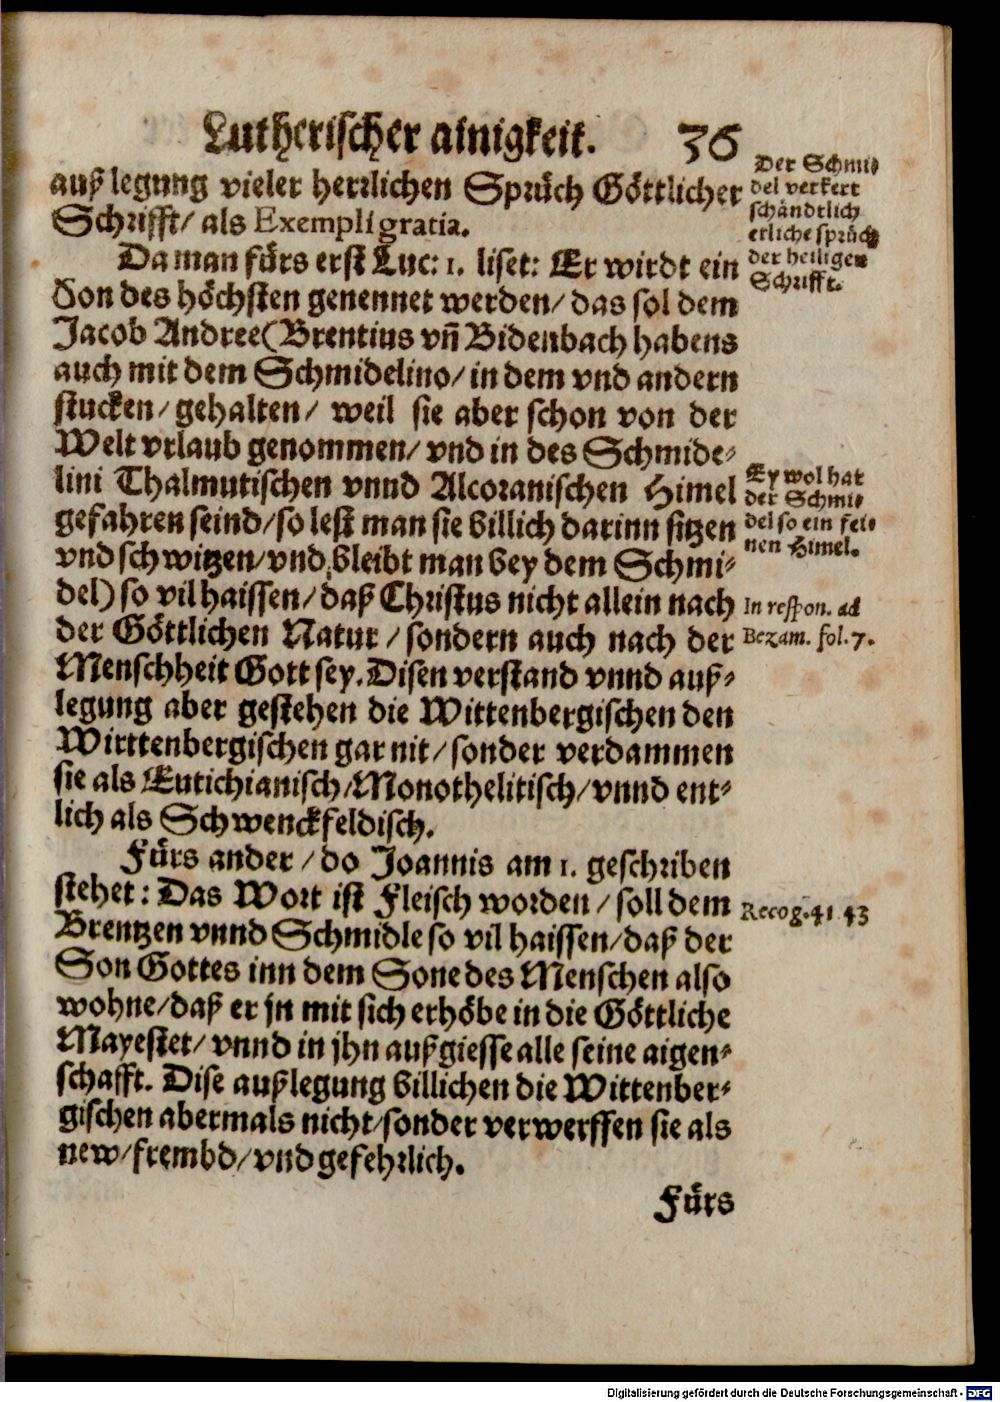 Lutherischer ainigkeit. 36
außlegung vieler herrlichen Sprüch Göttlicher
Schrifft/ als Exempli gratia.
Da man fürs erst Luc: 1. liset: Er wirdt ein
Son des höchsten genennet werden/ das sol dem
Jacob Andree (Brentius vñ Bidenbach habens
auch mit dem Schmidelino/ in dem vnd andern
stucken/ gehalten/ weil sie aber schon von der
Welt vrlaub genommen/ vnd in des Schmide-
lini Thalmutischen vnnd Alcoranischen Himel
gefahren seind/ so lest man sie billich darinn sitzen
vnd schwitzen/ vnd bleibt man bey dem Schmi-
del) so vil haissen/ daß Christus nicht allein nach
der Göttlichen Natur/ sondern auch nach der
Menschheit Gott sey. Disen verstand vnnd auß-
legung aber gestehen die Wittenbergischen den
Wirttenbergischen gar nit/ sonder verdammen
sie als Eutichianisch/ Monothelitisch/ vnnd ent-
lich als Schwenckfeldisch.
Fürs ander/ do Joannis am 1. geschriben
stehet: Das Wort ist Fleisch worden/ soll dem
Brentzen vnnd Schmidle so vil haissen/ daß der
Son Gottes inn dem Sone des Menschen also
wohne/ daß er jn mit sich erhöbe in die Göttliche
Mayestet/ vnnd in jhn außgiesse alle seine aigen-
schafft. Dise außlegung billichen die Wittenber-
gischen abermals nicht/ sonder verwerffen sie als
new/ frembd/ vnd gefehrlich.
Fürs
Der Schmi-
del verkert
schändtlich
erliche sprüch
der heiligen
Schrifft.
Ey wol hat
der Schmi-
del so ein fei-
nen Himel.
In respon. ad
Bezam. fol. 7.
Recog. 41 43
Digitalisierung gefördert durch die Deutsche Forschungsgemeinschaft - DFG